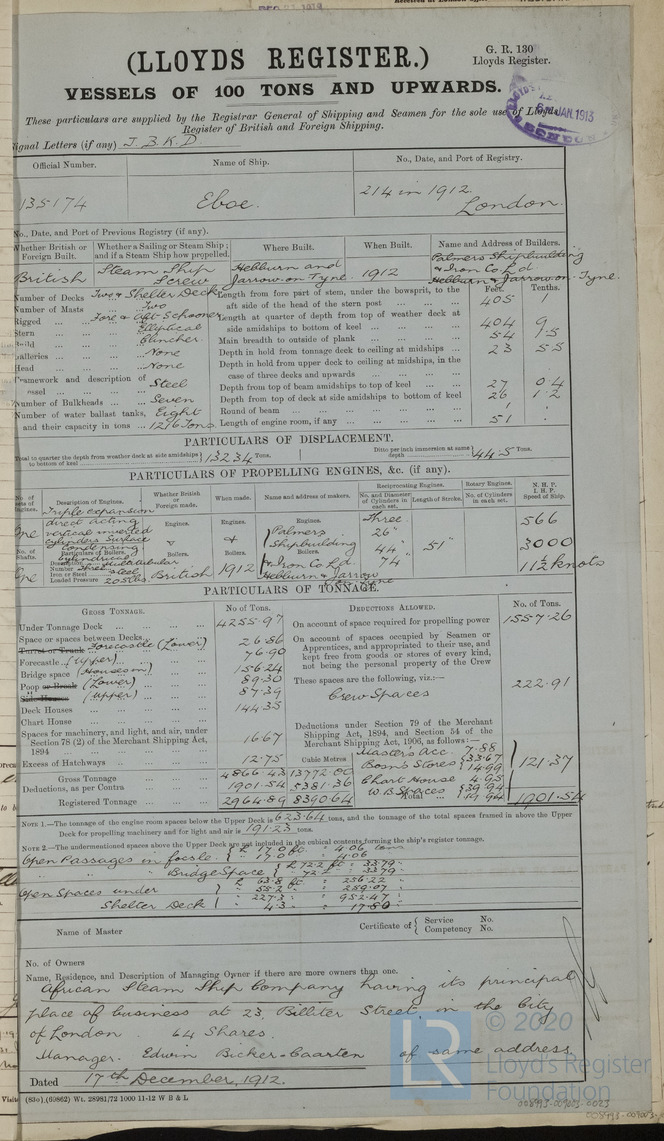 DEC 21 1912
(LLOYDS REGISTER.)
G. R. 130
Lloyds Register.
VESSELS OF 100 TONS AND UPWARDS.
6 JAN. 1913
These particulars are supplied by the Registrar General of Shipping and Seamen for the sole use of Lloyds
Register of British and Foreign Shipping.
ignal Letters (if any) J. B. K. D
Official Number. Name of Ship. No., Date, and Port of Registry.
135174 Eboe. 214 in 1912.
London.
No., Date, and Port of Previous Registry (if any).
Whether British or Foreign Built. Whether a Sailing or Steam Ship; and if a Steam Ship how propelled. Where Built. When Built. Name and Address of Builders.
British Steam Ship Screw Hebburn and Jarrow on Tyne 1912 Palmers Shipbuilding & Iron Co Ld Hebburn & Jarrow on Tyne.
Feet. Tenths.
Number of Decks Two & Shelter Deck
Number of Masts Two
Rigged Fore & Aft Schooner
Stern Elliptical
Build Clincher
Galleries None
Head None
Framework and description of vessel Steel
Number of Bulkheads Seven
Number of water ballast tanks, Eight
and their capacity in tons 1216 Tons
Length from fore part of stem, under the bowsprit, to the
aft side of the head of the stern post 405 1
Length at quarter of depth from top of weather deck at
side amidships to bottom of keel 404 9
Main breadth to outside of plank 54 1.5
Depth in hold from tonnage deck to ceiling at midships 23 55
Depth in hold from upper deck to ceiling at midships, in the
case of three decks and upwards
Depth from top of beam amidships to top of keel 27 04
Depth from top of deck at side amidships to bottom of keel 26 12
Round of beam 1
Length of engine room, if any 51
PARTICULARS OF DISPLACEMENT.
Total to quarter the depth from weather deck at side amidships to bottom of keel 13234 Tons.
Ditto per inch immersion at same depth 44.5 Tons.
PARTICULARS OF PROPELLING ENGINES, &c. (if any).
No. of sets of Engines. Description of Engines. Whether British or Foreign made. When made. Name and address of makers. Reciprocating Engines. No. and Diameter of Cylinders in each set. Length of Stroke. Rotary Engines. No. of Cylinders in each set. N. H. P. I. H. P. Speed of Ship.
One Triple expansion direct acting vertical inverted cylinders Surface condensing
Engines. & Boilers. British
Engines. & Boilers. 1912
Engines. Palmers Shipbuilding Boilers. & Iron Co Ld. Hebburn & Jarrow on Tyne
Three 26" 44" 74" 51"
566
3000
11½ knots
No. of Shafts. One
Particulars of Boilers.
Description Cylindrical Multitubular
Number Three
Iron or Steel Steel
Loaded Pressure 205 lbs
PARTICULARS OF TONNAGE.
GROSS TONNAGE. No of Tons. DEDUCTIONS ALLOWED. No. of Tons.
Under Tonnage Deck 4255.97
Space or spaces between Decks
Turret or Trunk Forecastle (Lower) 26.86
Forecastle (Upper) 76.90
Bridge space (Houses in) 156.24
Poop or Break (Lower) 89.30
Side Houses (Upper) 87.39
Deck Houses 144.35
Chart House
Spaces for machinery, and light, and air, under
Section 78 (2) of the Merchant Shipping Act,
1894 16.67
Excess of Hatchways 12.75 Cubic Metres
Gross Tonnage 4866.43 13772.00
Deductions, as per Contra 1901.54 5381.36
Registered Tonnage 2964.89 8390.64
On account of space required for propelling power 1557.26
On account of spaces occupied by Seamen or
Apprentices, and appropriated to their use, and
kept free from goods or stores of every kind,
not being the personal property of the Crew
These spaces are the following, viz.:— 222.91
Crew Spaces
Deductions under Section 79 of the Merchant
Shipping Act, 1894, and Section 54 of the
Merchant Shipping Act, 1906, as follows:—
Master's Acc. 7.88
Bosn's Stores 33.67 14.99
Chart House 4.95
W. B. Spaces 39.94 19.94
121.37
Total 1901.54
NOTE 1.—The tonnage of the engine room spaces below the Upper Deck is 623.64 tons, and the tonnage of the total spaces framed in above the Upper
Deck for propelling machinery and for light and air is 191.23 tons.
NOTE 2.—The undermentioned spaces above the Upper Deck are not included in the cubical contents forming the ship's register tonnage.
Open Passages in focsle. 17.0 ft : 4.06 tons
17.0 : 4.06
Bridge Space 72.2 ft : 33.79
72.2 : 33.79
Open Spaces under 63.8 ft : 256.22
55.2 : 259.07
Shelter Deck 227.3 : 952.47
4.3 : 17.50
Name of Master Certificate of Service No.
Competency No.
No. of Owners
Name, Residence, and Description of Managing Owner if there are more owners than one.
African Steam Ship Company having its principal
place of business at 23, Billiter Street in the City
of London. 64 Shares.
Manager. Edwin Bicker-Caarten of same address
Dated 17th December, 1912.
(83o) (60862) Wt. 28981/72 1000 11-12 W B & L
LR © 2020
Lloyd's Register
Foundation
008993-009003-0023